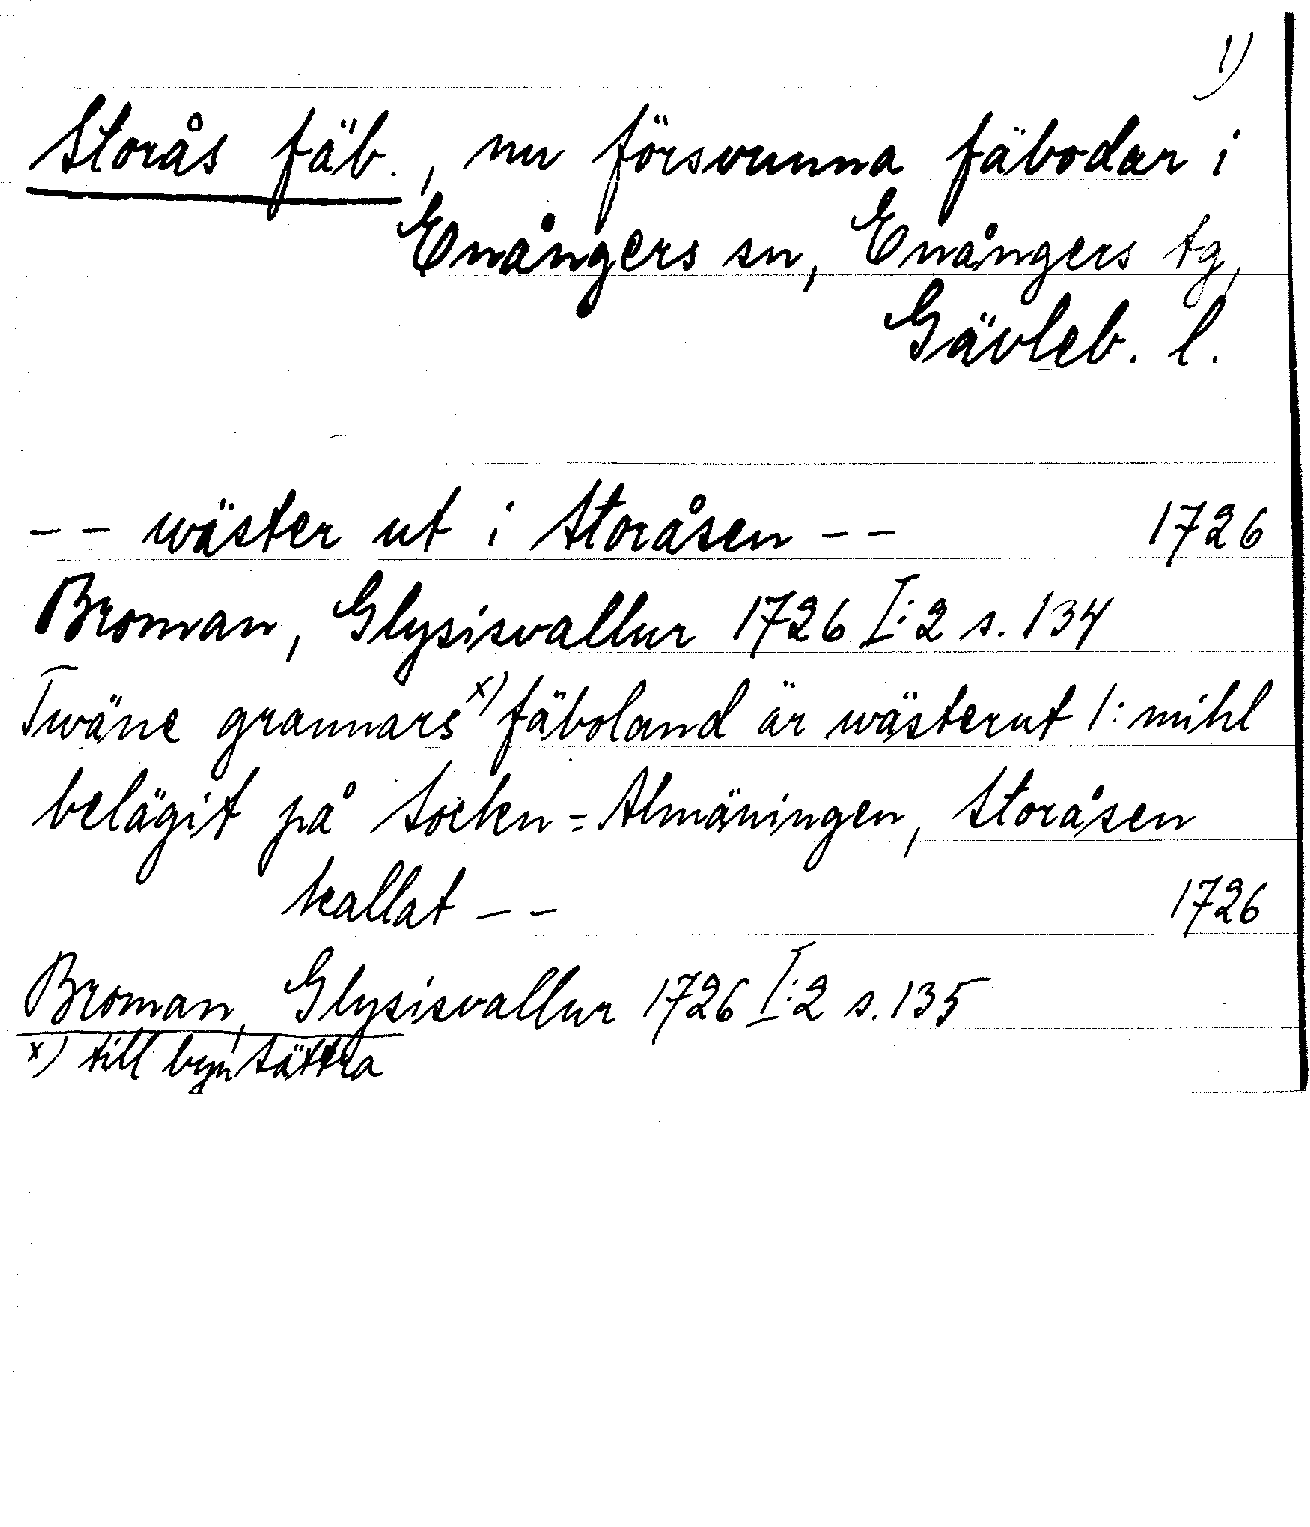 1)
Storås fäb., nu försvunna fäbodar i
Enångers sn, Enångers tg,
Gävleb. l.
-- wäster ut i Storåsen -- 1726
Broman, Glysisvallur 1726 I:2 s. 134
Twäne grannars x) fäboland är wästerut 1: mihl
belägit på Sockn=Almäningen, Storåsen
kallat -- 1726
Broman, Glysisvallur 1726 I:2 s. 135
x) till byn Sättra